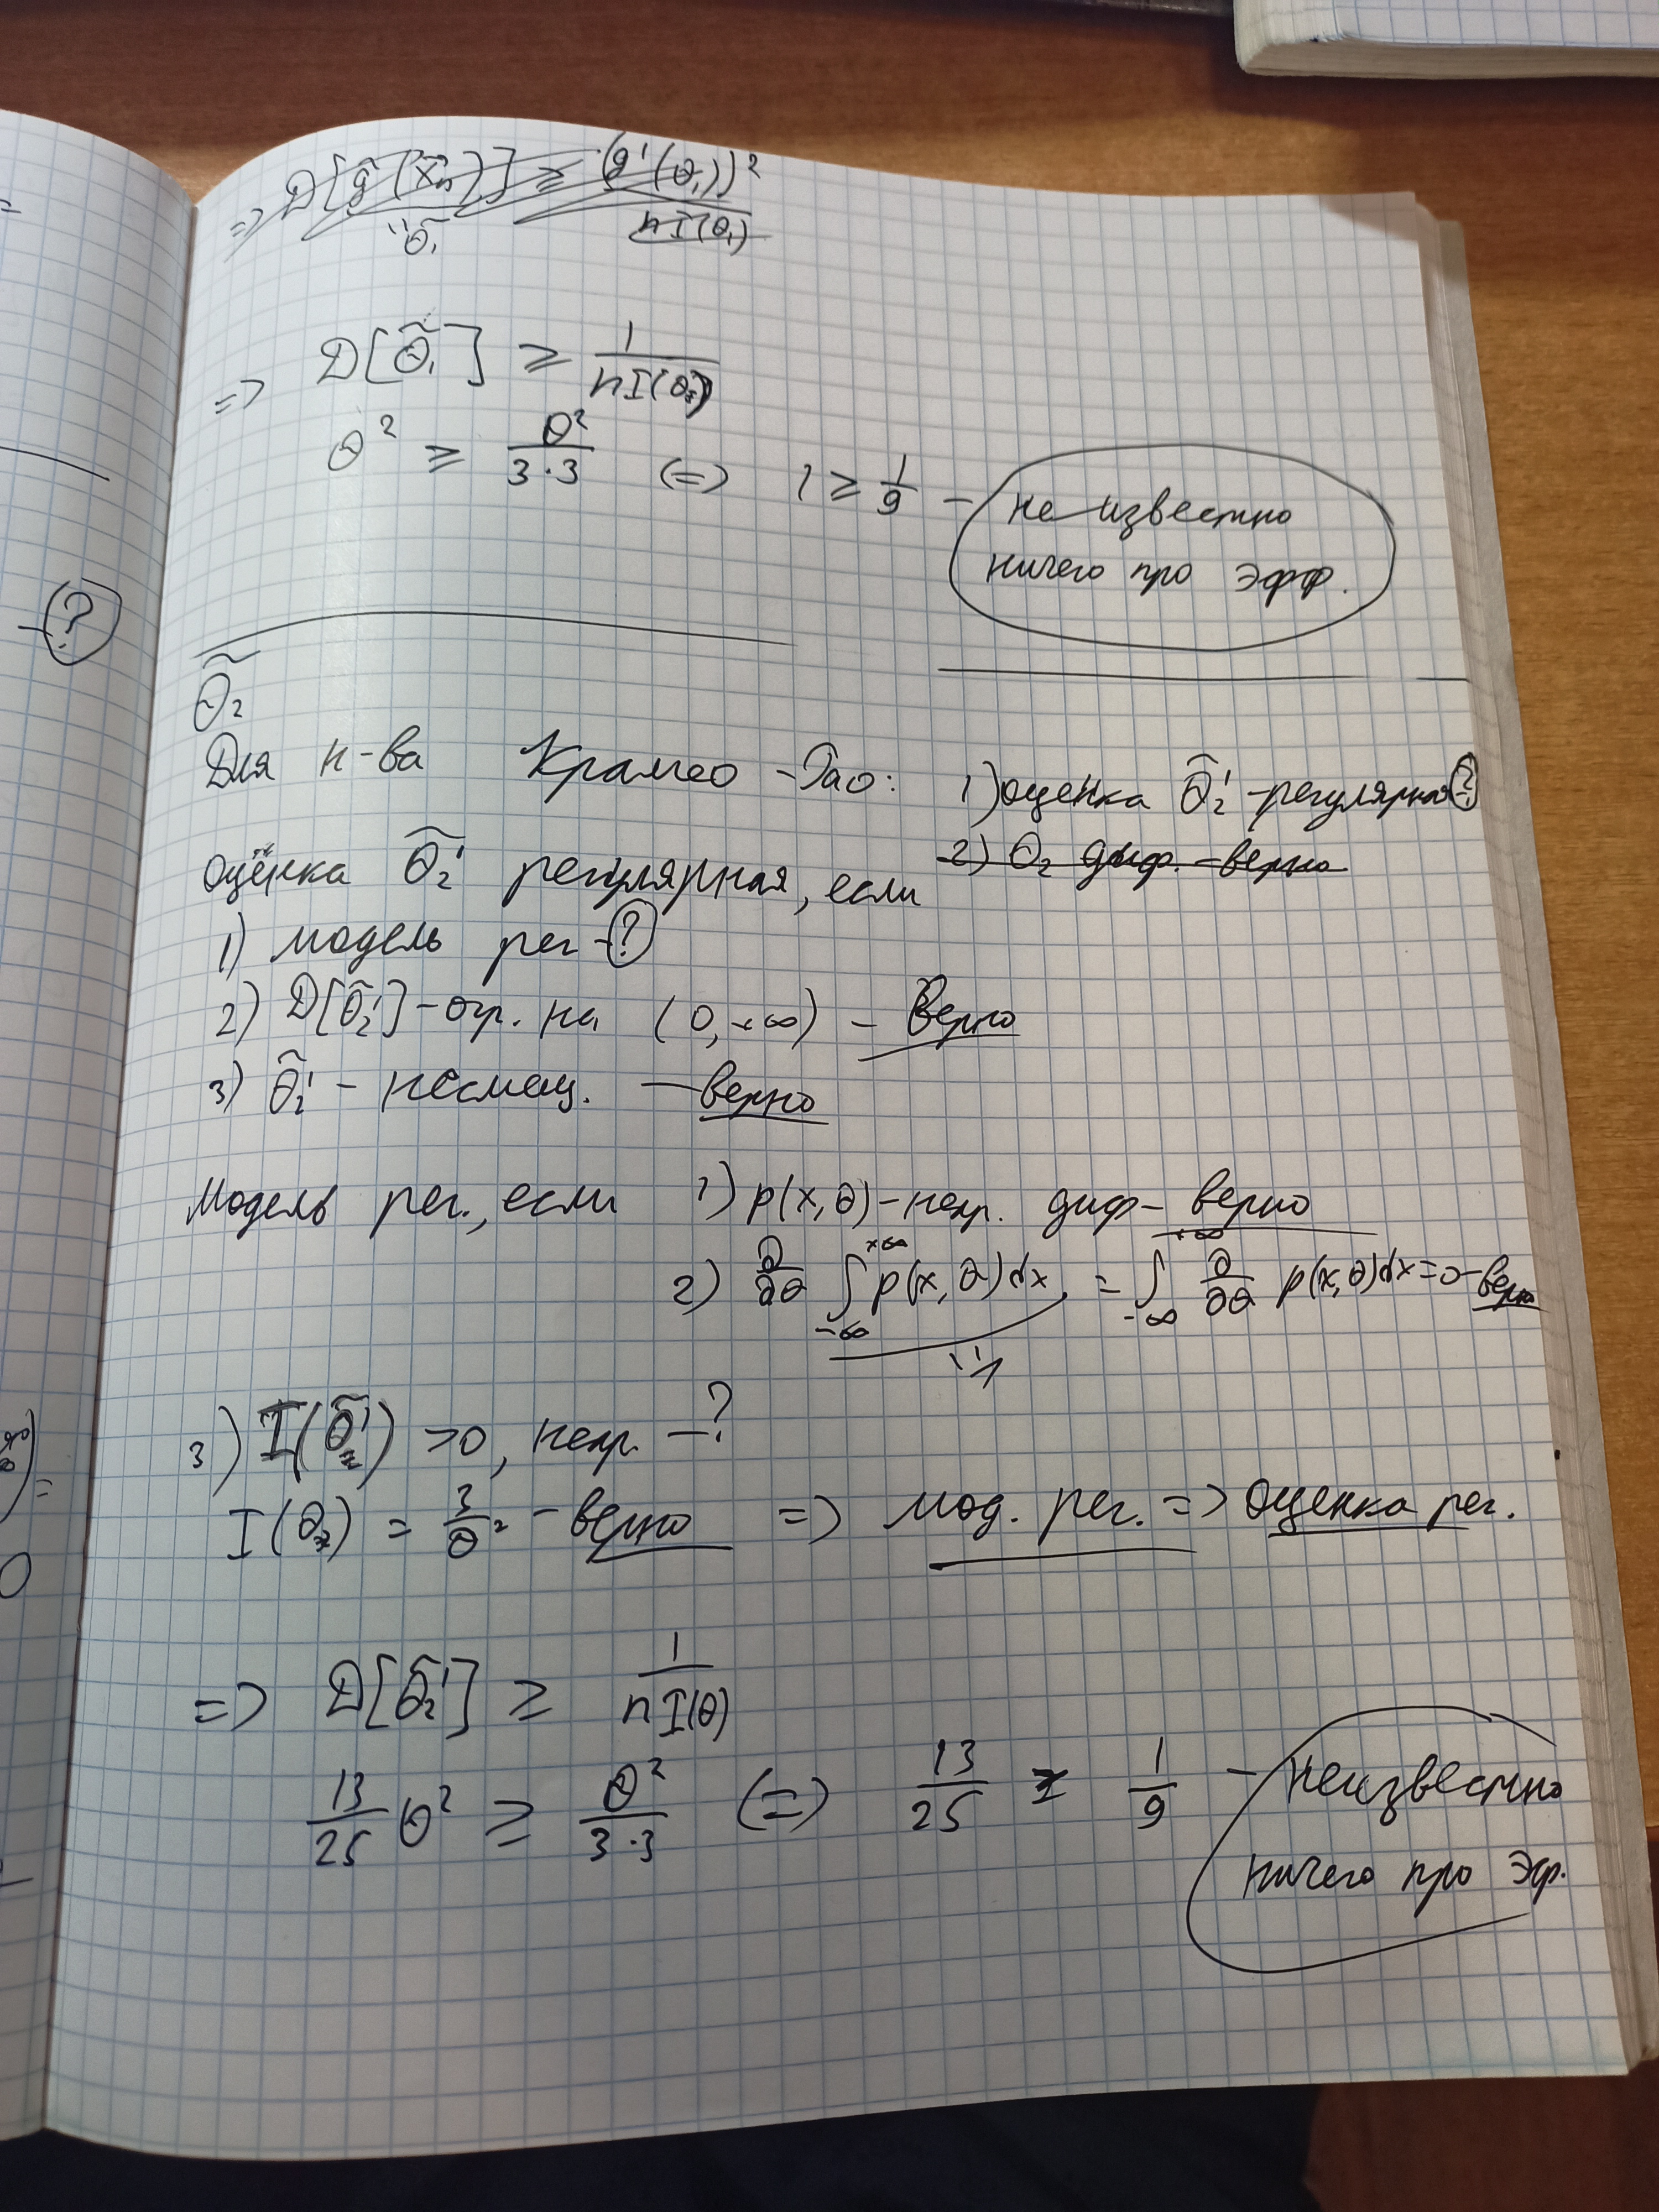 => D[g̃(x̄n)] ≥ (g'(θ₁))² / nI(θ₁)
θ̃₁
=> D[θ̃₁] ≥ 1 / nI(θ₂)
θ² ≥ θ² / 3·3 (=) 1 ≥ 1/9 – неизвестно
ничего про эфф.
?
θ̃₂
Для н-ва Крамео-Рао: 1) оценка θ̃₂' - регулярная ?
2) θ₂ диф. – верно
Оценка θ̃₂' регулярная, если
1) модель рег - ?
2) D[θ̃₂'] – огр. на (0, +∞) – верно
3) θ̃₂' – несмещ. – верно
Модель рег., если 1) p(x,θ) – непр. диф – верно
2) ∂/∂θ ∫_{-∞}^{+∞} p(x,θ)dx = ∫_{-∞}^{+∞} ∂/∂θ p(x,θ)dx = 0 – верно
1
3) I(θ̃₂') > 0, непр. – ?
I(θ₂) = 3/θ² – верно => мод. рег. => Оценка рег.
=> D[θ̃₂'] ≥ 1 / nI(θ)
13/25 θ² ≥ θ² / 3·3 (=) 13/25 ≥ 1/9 – неизвестно
ничего про эф.